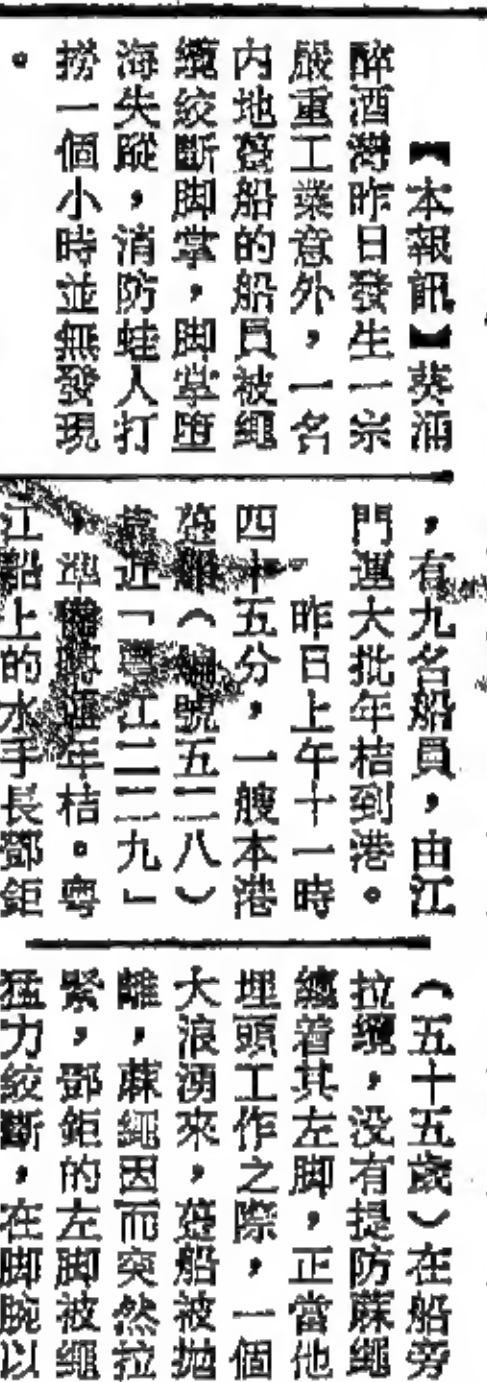 【本報訊】葵涌
醉酒灣昨日發生一宗
嚴重工業意外，一名
內地躉船的船員被繩
纜絞斷脚掌，脚掌墮
海失蹤，消防蛙人打
撈一個小時並無發現
。
，有九名船員，由江
門運大批年桔到港。
昨日上午十一時
四十五分，一艘本港
躉船（編號五二八）
靠近「粵江二二九」
，準備轉運年桔。粵
江船上的水手長鄧鉅
（五十五歲）在船旁
拉纜，没有提防蔴繩
纏着其左脚，正當他
埋頭工作之際，一個
大浪湧來，躉船被拋
離，蔴繩因而突然拉
緊，鄧鉅的左脚被繩
猛力絞斷，在脚腕以